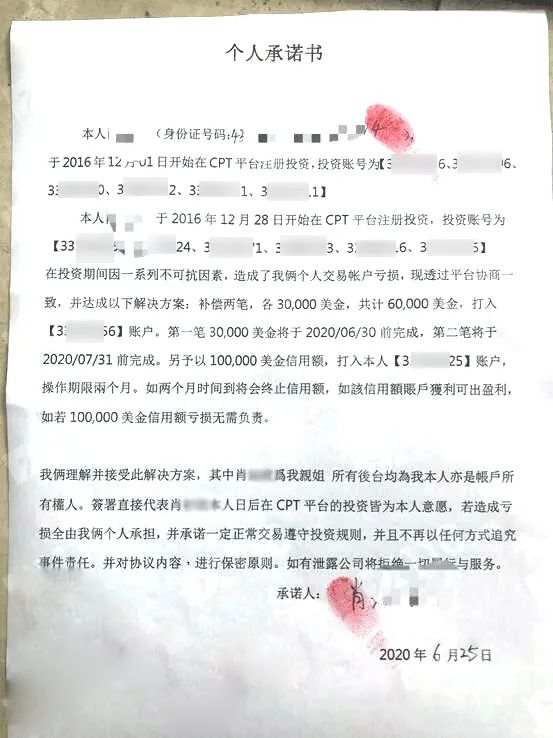 个人承诺书
本人 （身份证号码:43 4），
于 2016 年 12 月 01 日开始在 CPT 平台注册投资，投资账号为【3 6、3 06、
33 0、3 2、33 1、3 1】
本人 于 2016 年 12 月 28 日开始在 CPT 平台注册投资，投资账号为
【33 24、3 71、3 3、32 16、3 6】
在投资期间因一系列不可抗因素，造成了我俩个人交易帐户亏损，现透过平台协商一
致，并达成以下解决方案：补偿两笔，各 30,000 美金，共计 60,000 美金，打入
【33 66】账户。第一笔 30,000 美金将于 2020/06/30 前完成，第二笔将于
2020/07/31 前完成。另予以 100,000 美金信用额，打入本人【3 25】账户，
操作期限兩个月。如两个月时间到将会终止信用额，如該信用額賬戶獲利可出盈利，
如若 100,000 美金信用额亏损无需负责。
我俩理解并接受此解决方案，其中肖 爲我親姐 所有後台均為我本人亦是帳戶所
有權人。簽署直接代表肖 本人日后在 CPT 平台的投资皆为本人意愿，若造成亏
损全由我俩个人承担，并承诺一定正常交易遵守投资规则，并且不再以任何方式追究
事件责任。并对协议内容，进行保密原则。如有泄露公司将拒绝一切 与服务。
承诺人： 肖
2020 年 6 月 25 日